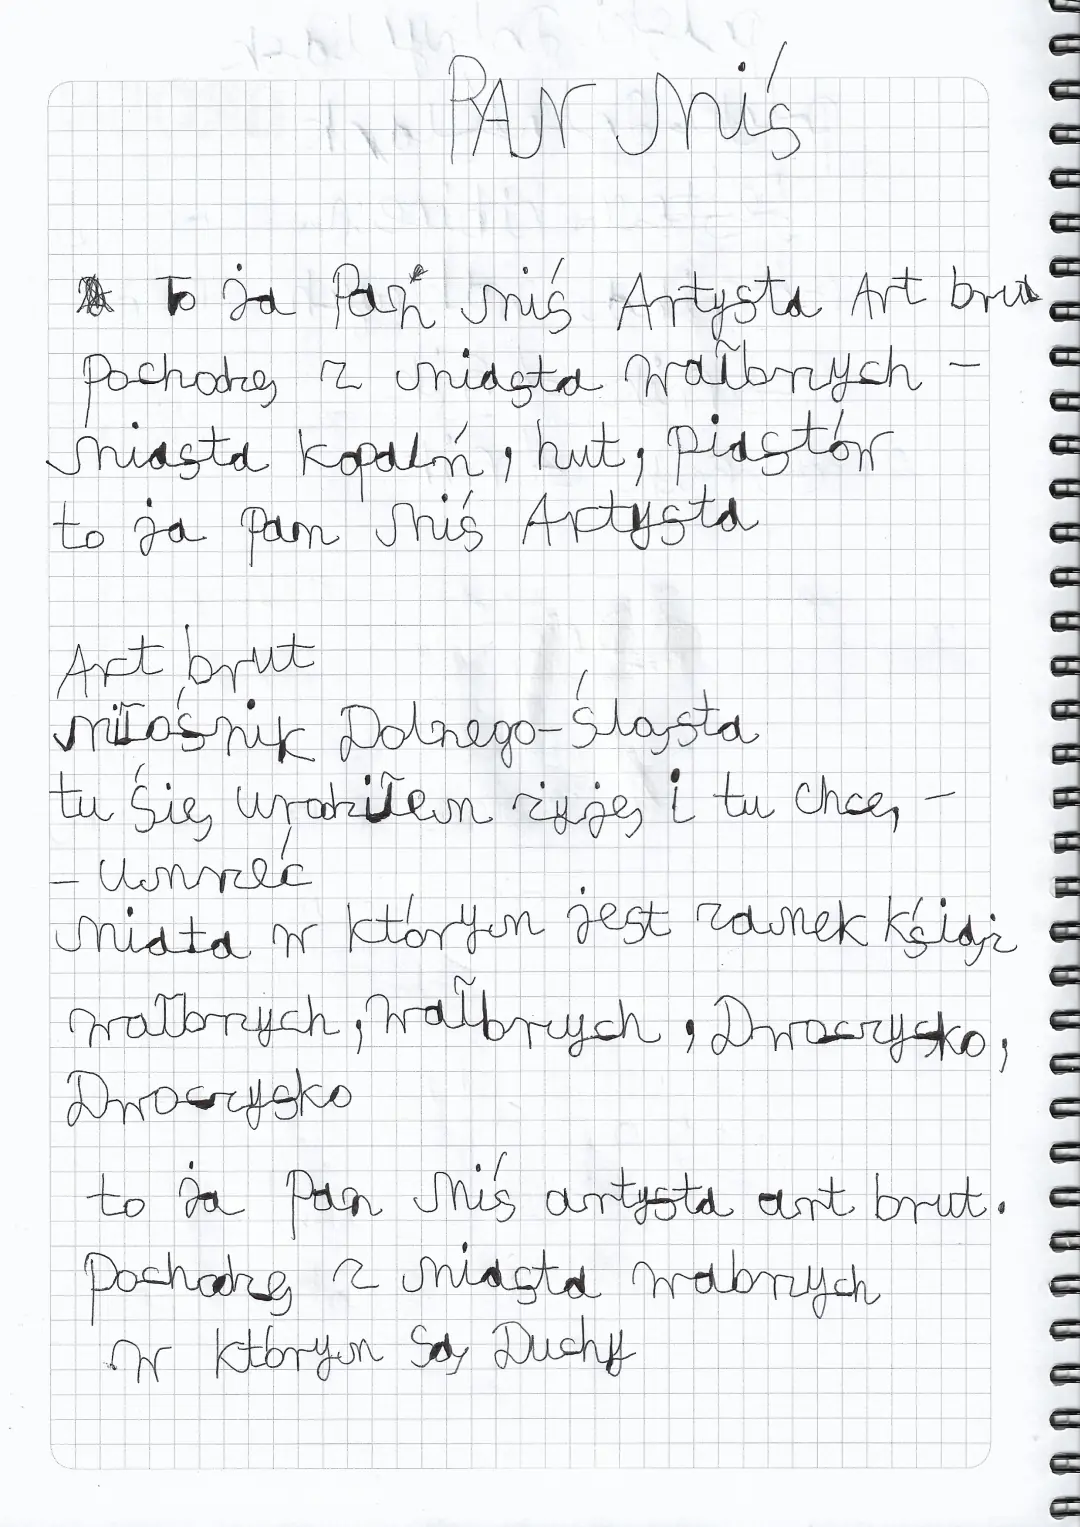 PAN Miś
To ja Pan Miś Artysta Art brut
Pochodzę z miasta wałbrzych -
Miasta kopalń, hut, piastów
to ja Pan Miś Artysta
Art brut
miłośnik Dolnego-Śląsta
tu się urodziłem żyję i tu chcę -
- Umrzeć
Miata w którym jest zamek Książ
wałbrzych, wałbrzych, Dwoczysko,
Dwoczysko
to ja Pan Miś artysta art brut.
Pochodzę z miasta wabrzych
w którym Są Duchy